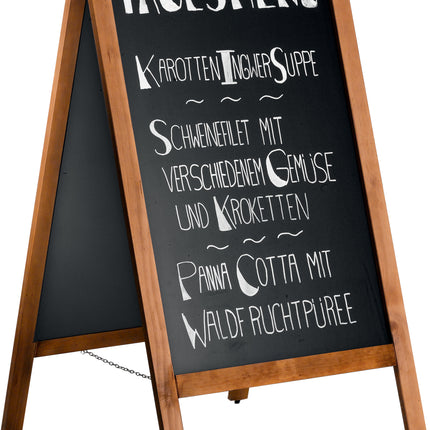 TAGESMENÜ
KAROTTEN INGWER SUPPE
~ ~ ~
SCHWEINEFILET MIT
VERSCHIEDENEM GEMÜSE
UND KROKETTEN
~ ~ ~
PANNA COTTA MIT
WALDFRUCHTPÜREE